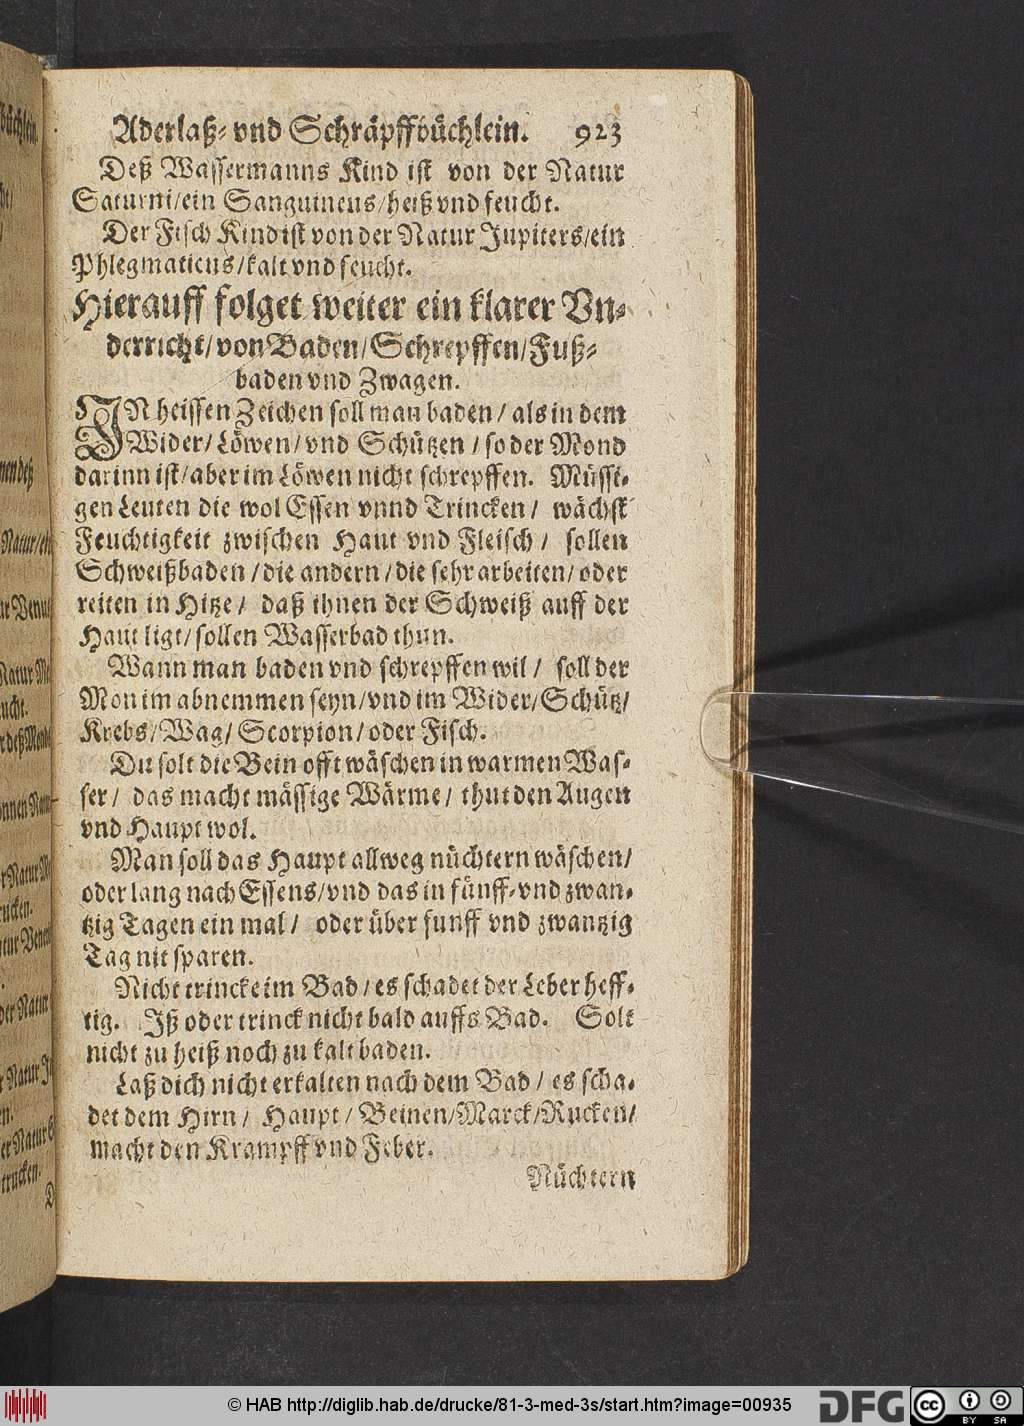 Aderlaß- vnd Schräpffbüchlein. 923
Deß Wassermanns Kind ist von der Natur
Saturni/ein Sanguineus/heiß vnd feucht.
Der Fisch Kind ist von der Natur Jupiters/ein
Phlegmaticus/kalt vnd feucht.
Hierauff folget weiter ein klarer Vn-
derricht/von Baden/Schrepffen/Fuß-
baden vnd Zwagen.
IN heissen Zeichen soll man baden/als in dem
Wider/Löwen/vnd Schützen/so der Mond
darinn ist/aber im Löwen nicht schrepffen. Müssi-
gen Leuten die wol Essen vnnd Trincken/ wächst
Feuchtigkeit zwischen Haut vnd Fleisch/ sollen
Schweißbaden/die andern/die sehr arbeiten/oder
reiten in Hitze/ daß ihnen der Schweiß auff der
Haut ligt/sollen Wasserbad thun.
Wann man baden vnd schrepffen wil/ soll der
Mon im abnemmen seyn/vnd im Wider/Schütz/
Krebs/Wag/Scorpion/oder Fisch.
Du solt die Bein offt wäschen in warmen Was-
ser/ das macht mässige Wärme/ thut den Augen
vnd Haupt wol.
Man soll das Haupt allweg nüchtern wäschen/
oder lang nach Essens/vnd das in fünff-vnd zwan-
tzig Tagen ein mal/ oder über funff vnd zwantzig
Tag nit sparen.
Nicht trincke im Bad/es schadet der Leber heff-
tig. Iß oder trinck nicht bald auffs Bad. Solt
nicht zu heiß noch zu kalt baden.
Laß dich nicht erkalten nach dem Bad/es scha-
det dem Hirn/ Haupt/Beinen/Marck/Rucken/
macht den Krampff vnd Feber.
Nüchtern
© HAB http://diglib.hab.de/drucke/81-3-med-3s/start.htm?image=00935
DFG
cc
BY SA